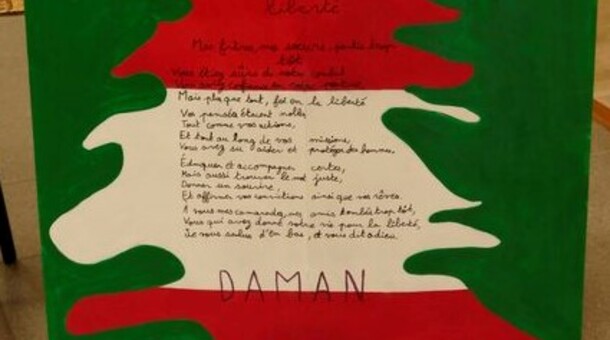 Liberté
Mes frères, mes soeurs, partis trop
tôt
Vous étiez sûrs de votre combat
Vous aviez confiance en votre
Mais plus que tout, foi en la liberté
Vos pensées étaient nobles
Tout comme vos actions,
Et tout au long de vos missions,
Vous avez su aider et protéger des hommes.
Éduquer et accompagner certes,
Mais aussi trouver le mot juste,
Donner un sourire,
Et affirmer vos convictions ainsi que vos rêves.
A vous mes camarades, mes amis tombés trop tôt,
Vous qui avez donné votre vie pour la liberté,
Je vous salue d'en bas, et vous dit adieu.
DAMAN